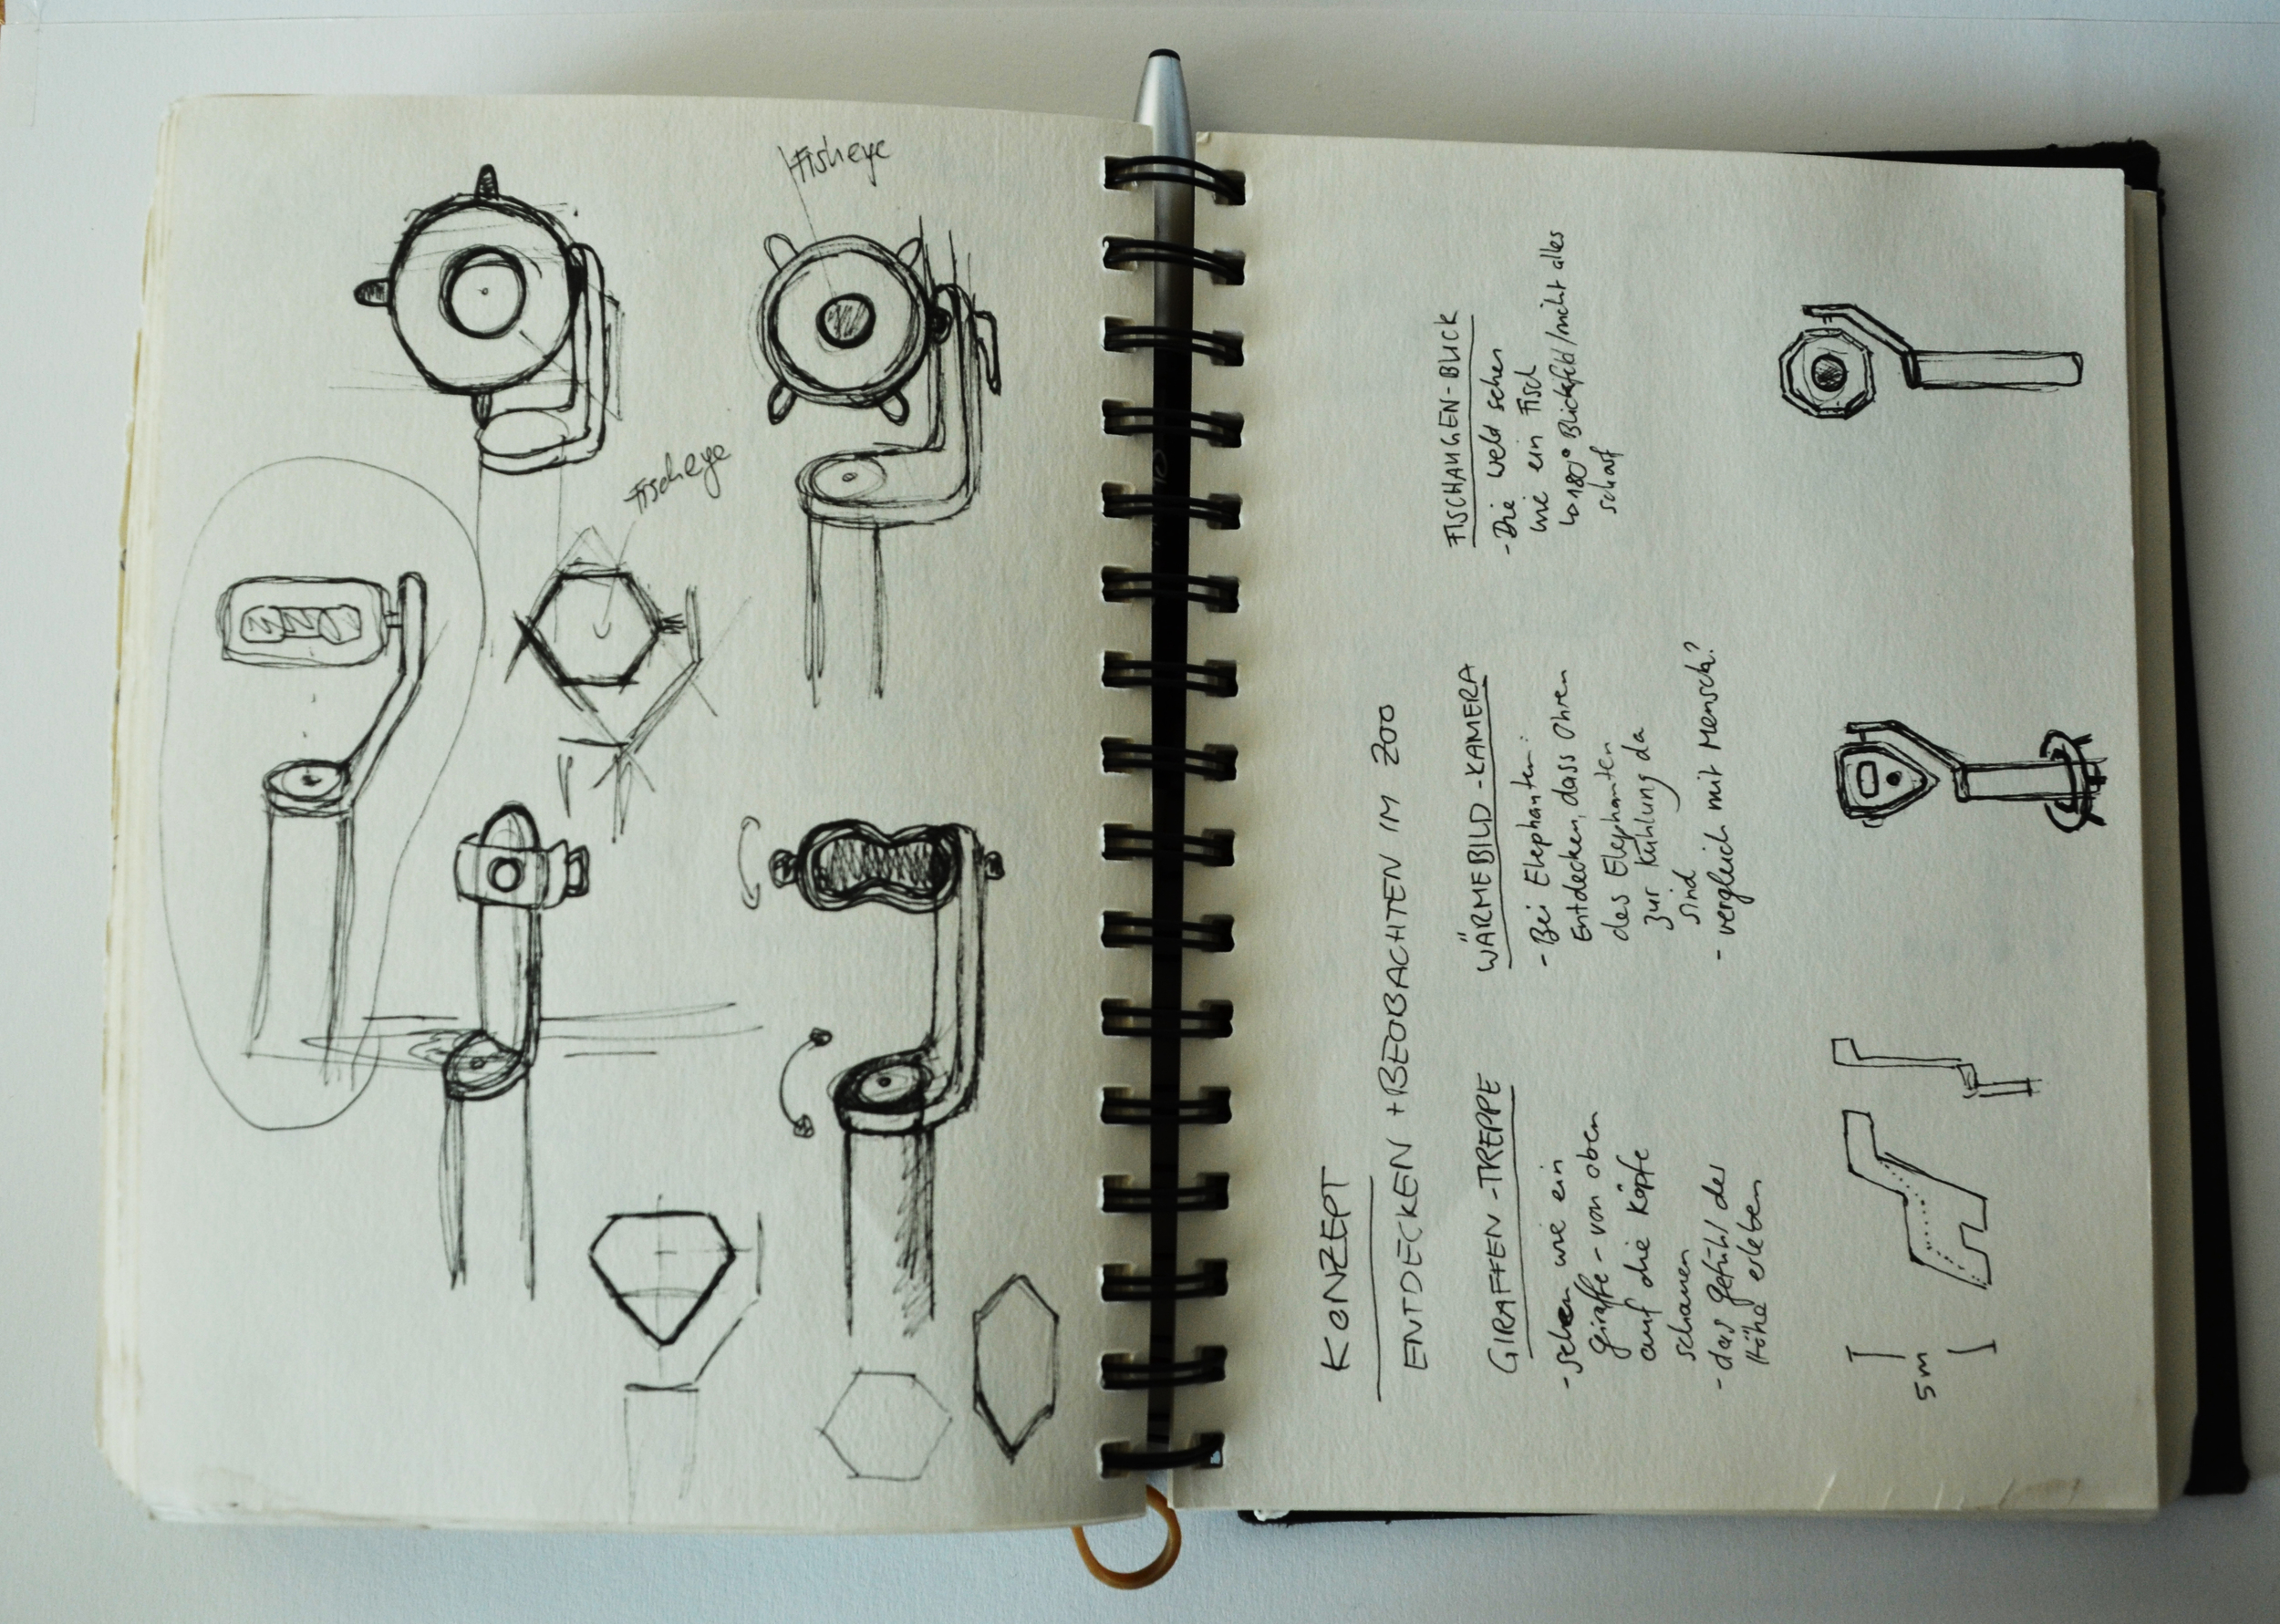 Fisheye
Fischeye
KONZEPT
ENTDECKEN + BEOBACHTEN IM ZOO
GIRAFFEN-TREPPE
- sehen wie ein
giraffe - von oben
auf die köpfe
schauen
- das gefühl der
Höhe erleben
5m
WÄRMEBILD-KAMERA
- Bei Elephanten:
Entdecken, dass Ohren
des Elephanten
zur Kühlung da
sind
- vergleich mit Mensch?
FISCHAUGEN-BLICK
- Die Welt sehen
wie ein Fisch
↳ 180° Blickfeld/nicht alles
scharf